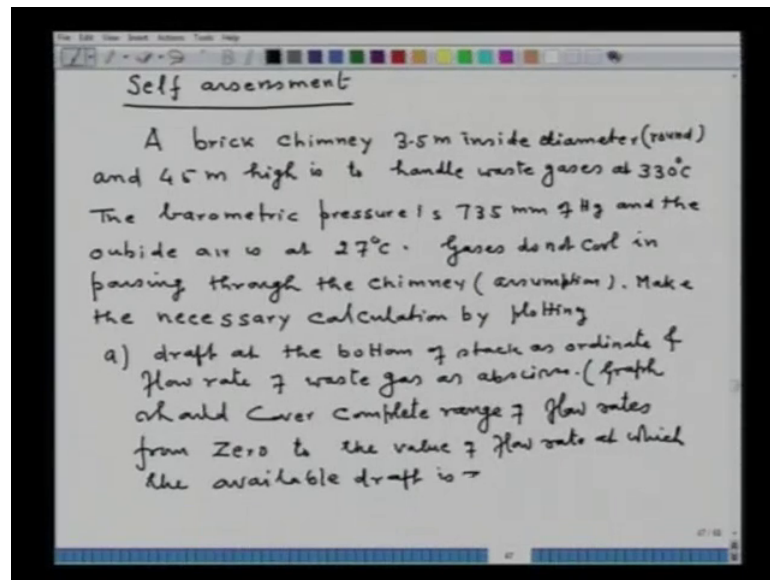 Self assessment
A brick chimney 3.5m inside diameter (round)
and 45 m high is to handle waste gases at 330°C
The barometric pressure is 735 mm of Hg and the
outside air is at 27°C. Gases do not cool in
passing through the chimney (assumption). Make
the necessary calculation by plotting
a) draft at the bottom of stack as ordinate &
flow rate of waste gas as abscissa. (Graph
should cover complete range of flow rates
from Zero to the value of flow rate at which
the available draft is →
47